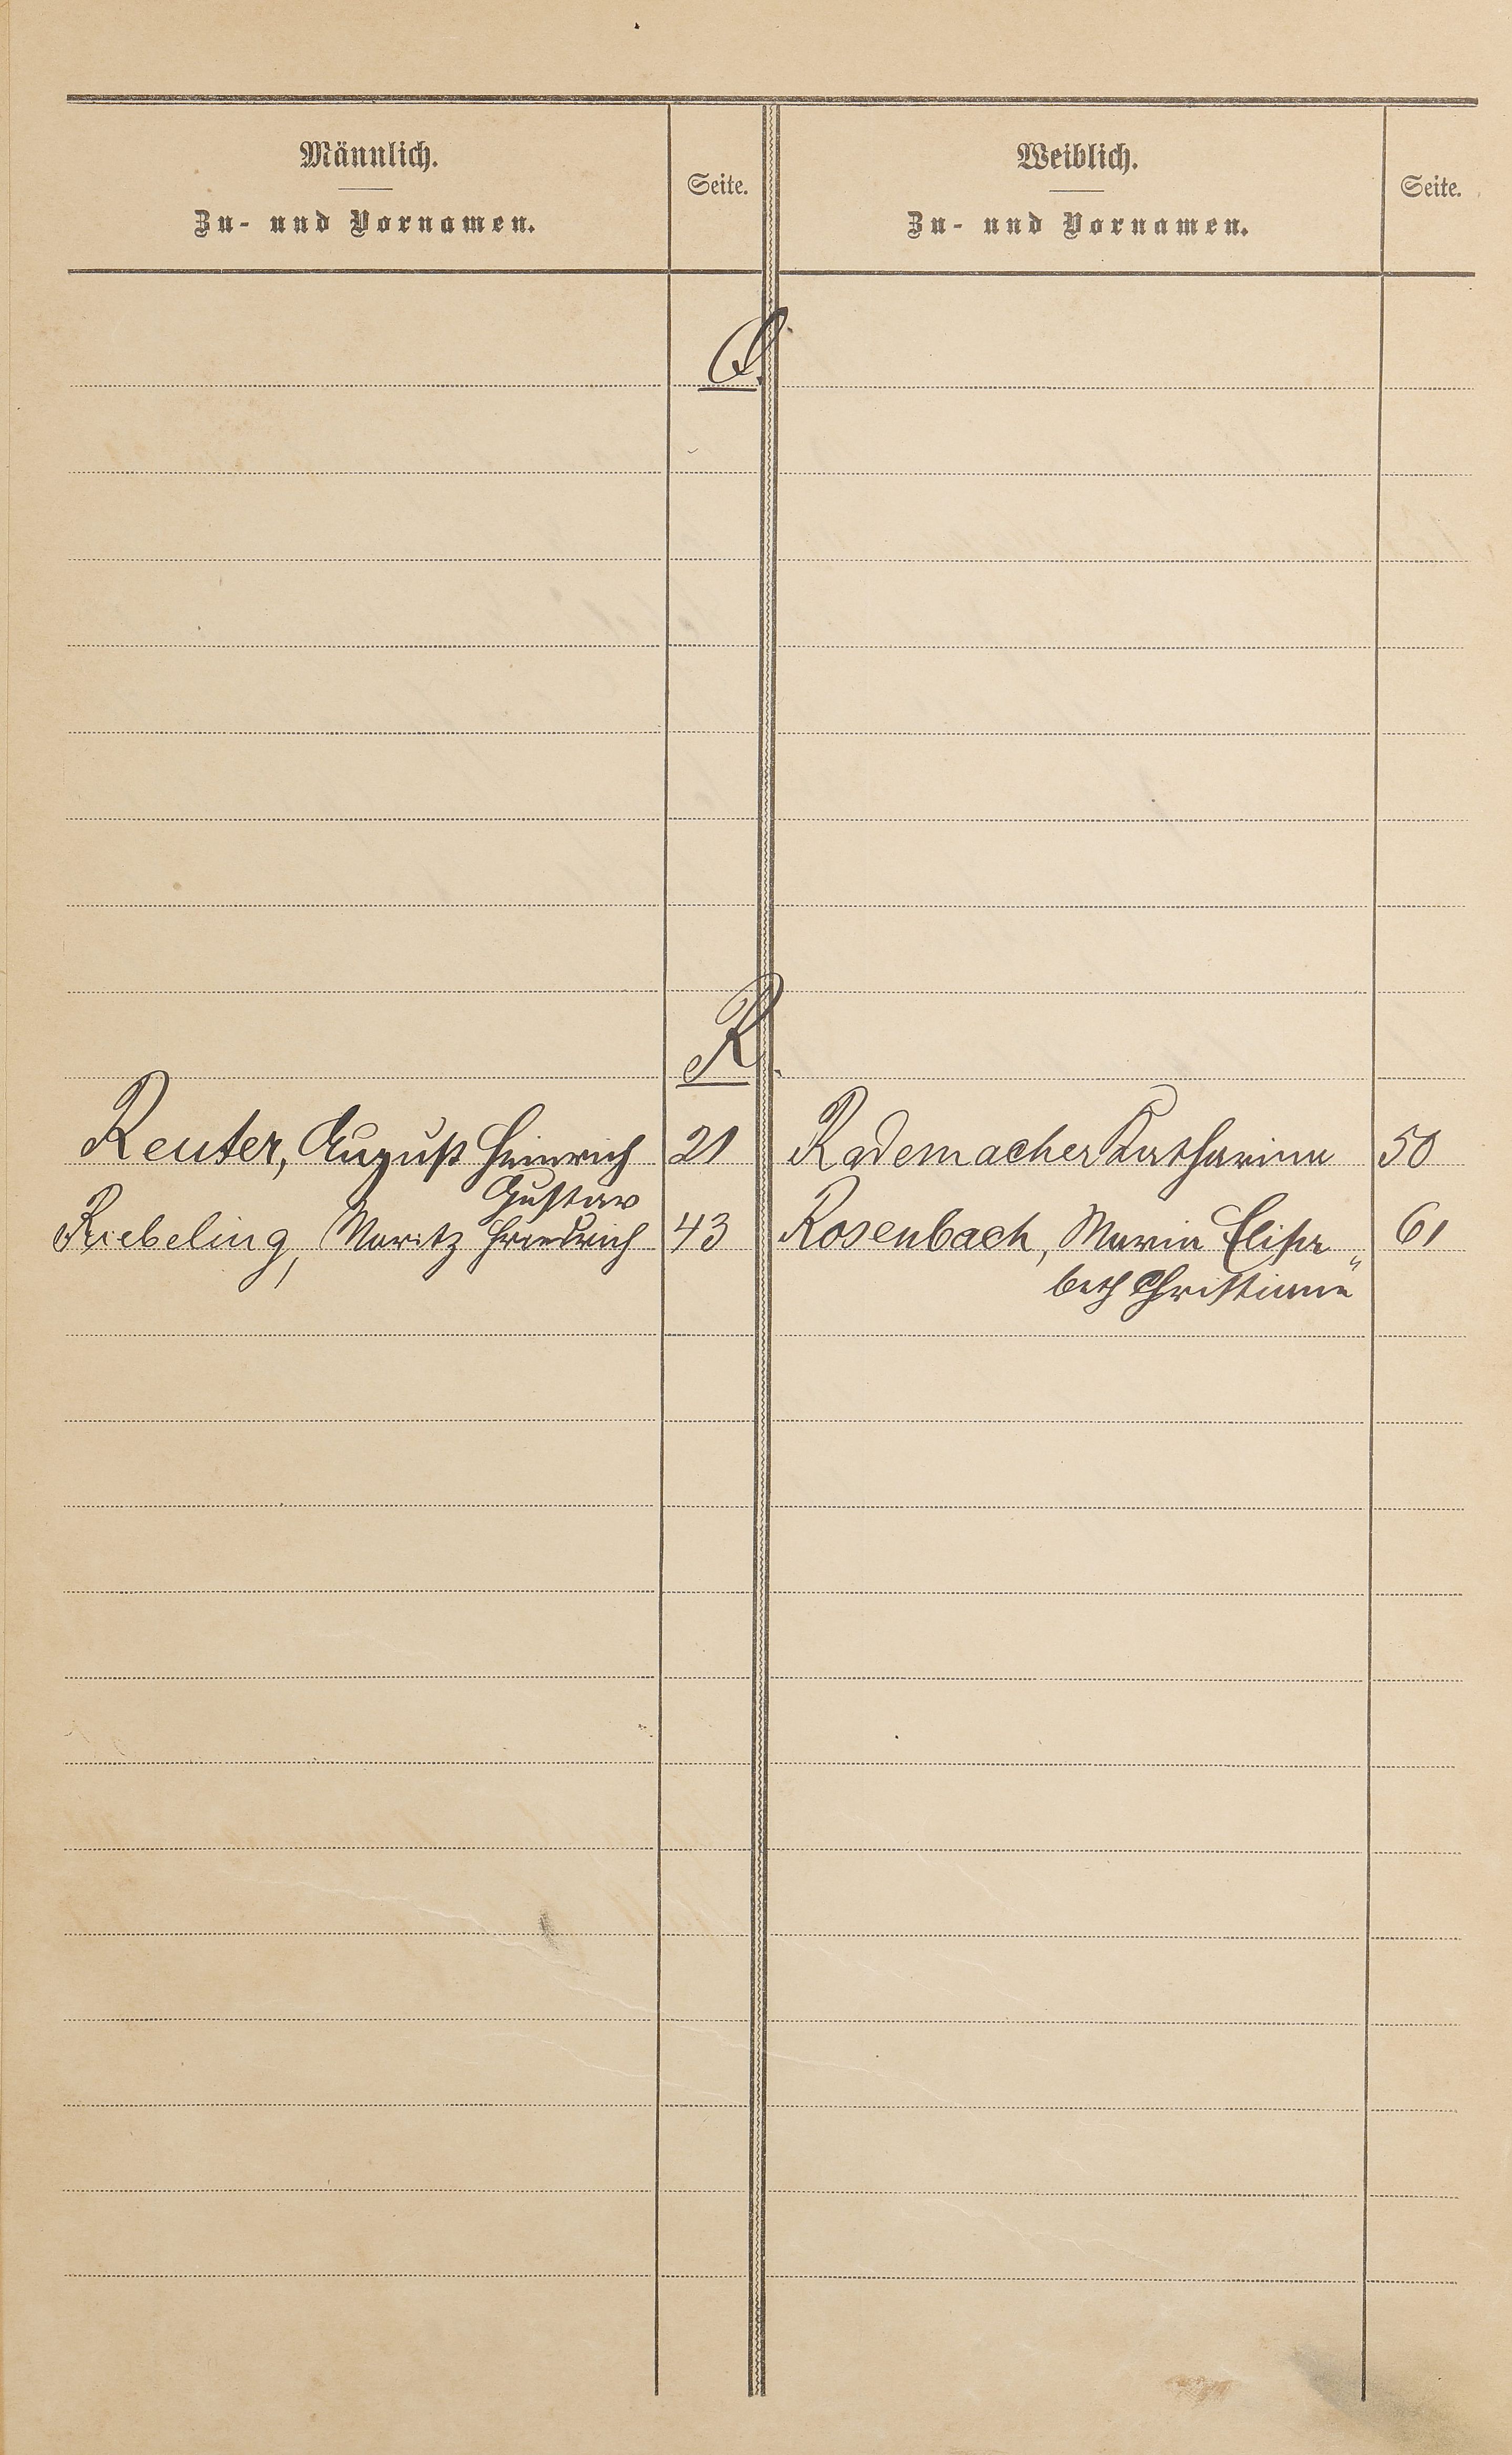 Männlich.
Zu- und Vornamen.
Seite.
Weiblich.
Zu- und Vornamen.
Seite.
Q.
R.
Reuter, August Heinrich 21
Rademacher Katharina 50
Gustav
Riebeling, Moritz Friedrich 43
Rosenbach, Maria Elisa„ 61
beth Christiane